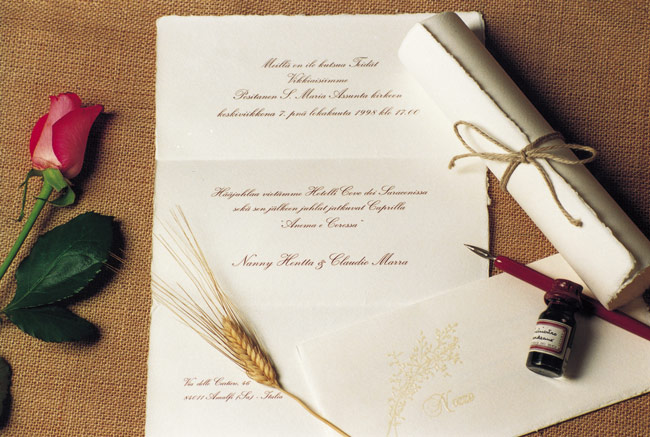 Meillä on ilo kutsua Teidät
Vihkiäisiimme
Positanon S. Maria Assunta kirkoon
keskiviikkona 7. pnä lokakuuta 1998 klo 17.00
Hääjuhlaa vietämme Hotelli Covo dei Saracenissa
sekä sen jälkeen juhlat jatkuvat Caprilla
"Anema e Coressa"
Nanny Hentta & Claudio Marra
Via delle Cartiere, 46
84011 Amalfi (Sa) - Italia